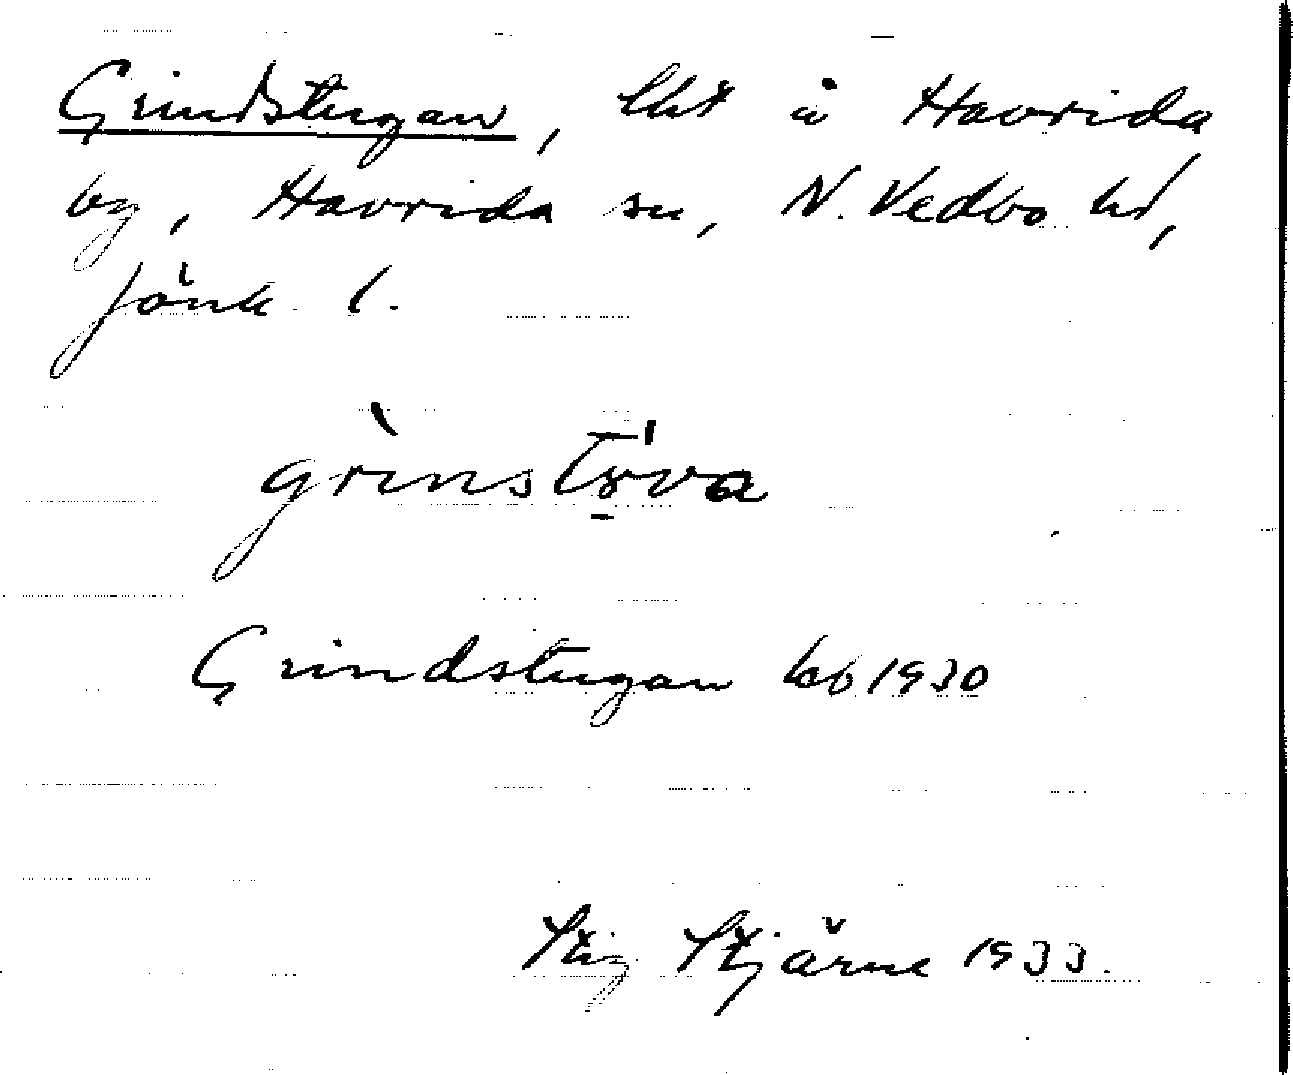 Grindstugan, lht å Haurida
by, Haurida sn, N. Vedbo hd,
Jönk. l.
Grindstugan kb 1930
Stig Stjärne 1933.